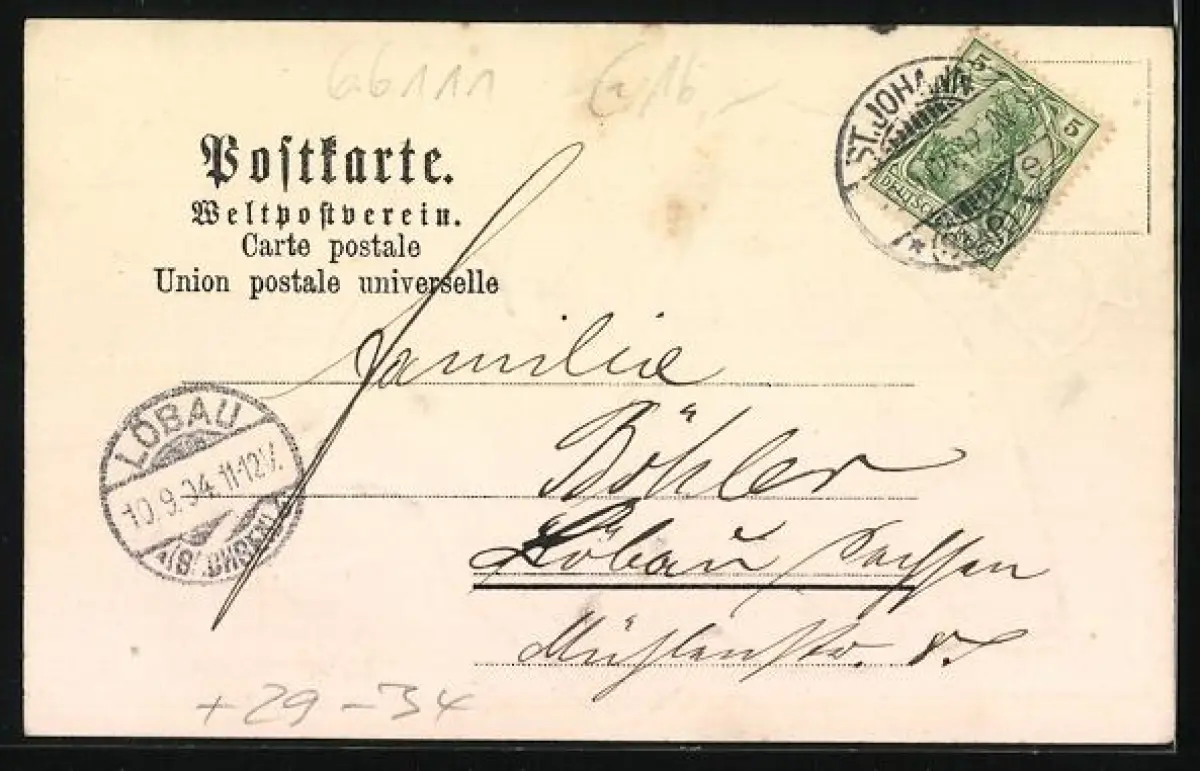 66111 €,16,-
Postkarte.
Weltpostverein.
Carte postale
Union postale universelle
ST. JOHANN
5 5
Familie
Böhler
Löbau Sachsen
Mühlenstr. 8.
LÖBAU
10.9.04 11-12 V.
+29-34